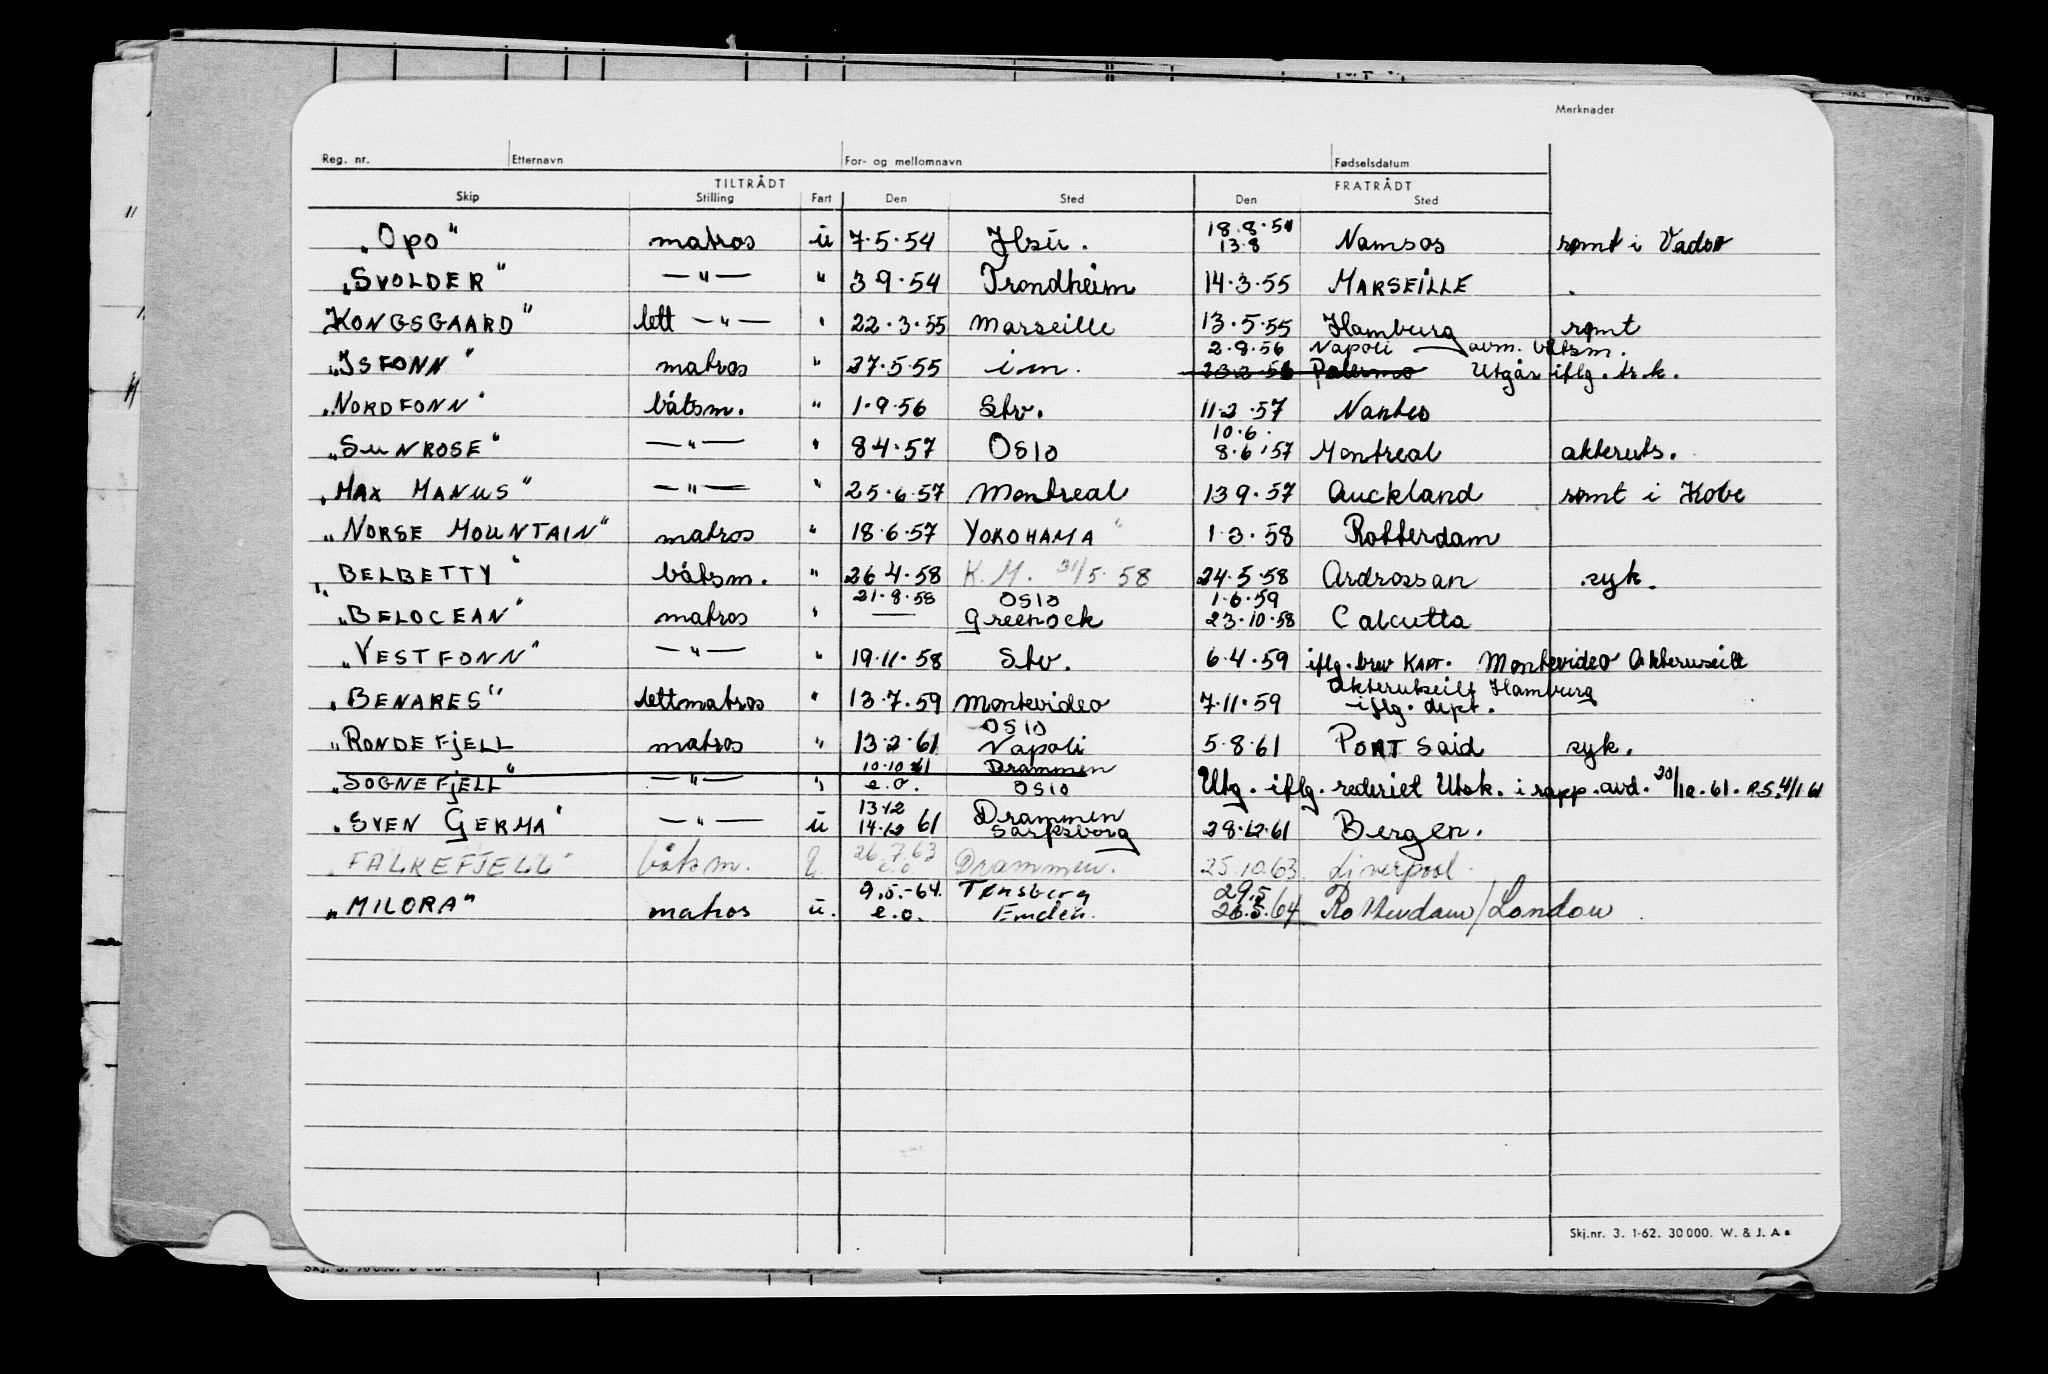 Merknader
Reg. nr. Etternavn For- og mellomnavn Fødselsdatum
TILTRÅDT FRATRÅDT
Skip Stilling Fart Den Sted Den Sted
18.8.54
„Opo" matros ü 7.5.54 13.8 Namsos rømt i
„SVOLDER" —"— " 3 9.54 Trondheim 14.3.55 MARSEILLE
KONGSGAARD" lett —"— " 22.3.55 Marseille 13.5.55 Hamburg rømt
2.8.56 Napoli — avm. båtsm.
„ISFONN" matros " 27.5.55 i m. Palermo Utgår iflg. tr.k.
„NORDFONN" båtsm. " 1.9.56 Stv. 11.2.57 Nantes
10.6.
„SUNROSE" —"— " 8 4.57 OSlO 8.6.57 Montreal akteruts.
„MAX MANUS" —"— " 25.6.57 Montreal 13 9.57 Auckland rømt i Kobe
„NORSE MOUNTAIN" matros " 18.6.57 YOKOHAMA " 1.3.58 Rotterdam
„BELBETTY" båtsm. " 26 4.58 K.M. 31/5.58 24.5.58 Ardrossan syk.
21.8.58 OSlO 1.6.59
„BELOCEAN" matros " — Greenock 23.10.58 Calcutta
„VESTFONN" —"— " 19.11.58 Stv. 6.4.59 iflg. brev KAPT. Montevideo Akteruseilt
akterutseilt Hamburg
„BENARES" lettmatros " 13.7.59 Montevideo 7.11.59 iflg. dept.
OSlO
„RONDEFJELL matros " 13.2.61 Napoli 5.8.61 PORT Said syk.
10.10.61 Drammen
„SOGNEFJELL" —"— " e.o. OSlO Utg. iflg. rederiet Utsk. i rapp. avd. 20/10.61. P.S. 4/1 61
13.12 Drammen
„SVEN GERMA" —"— ü 14.12 61 Sarpsborg 28.12.61 Bergen.
26.7.63
„FALKEFJELL" båtsm. e.o Drammen. 25.10.63. Liverpool.
9.5.-64. Tønsberg 29.5
„MILORA" matros ü. e.o. Emden. 26.5.64 Rotterdam/London
Skj.nr. 3. 1-62. 30 000. W. & J. A s